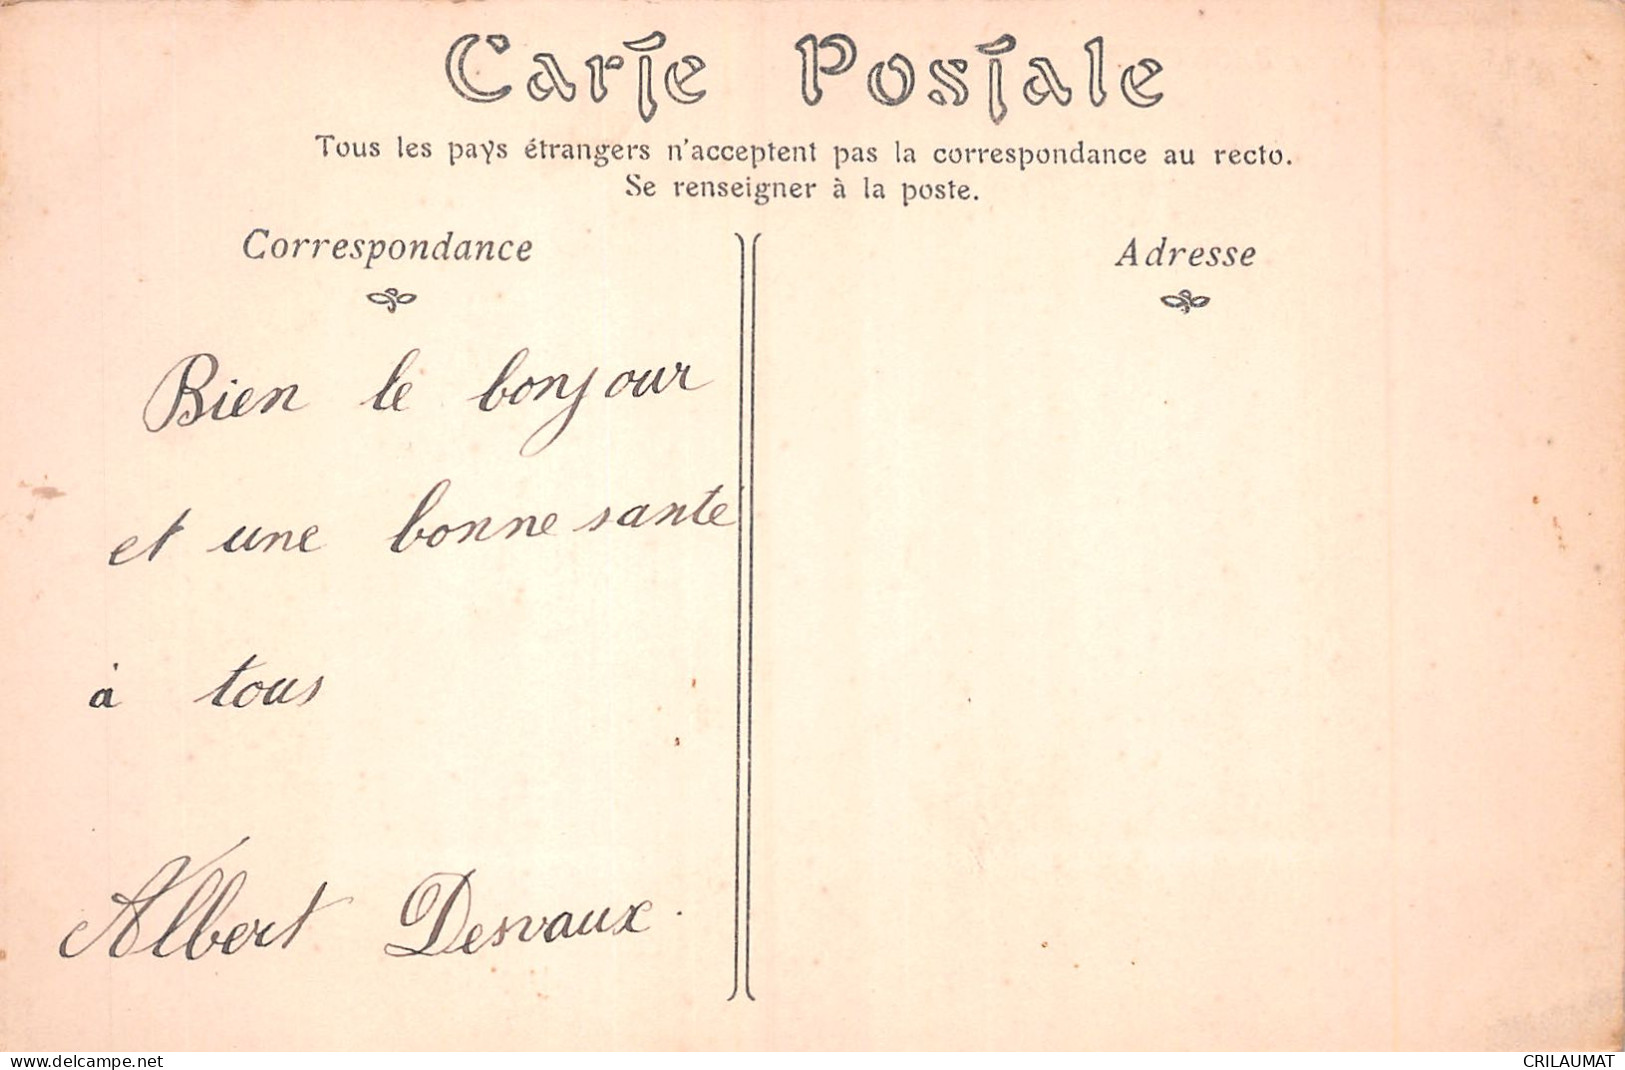 Carte Postale
Tous les pays étrangers n'acceptent pas la correspondance au recto.
Se renseigner à la poste.
Correspondance
Adresse
Bien le bonjour
et une bonne santé
à tous
Albert Desvaux.
www.delcampe.net
CRILAUMAT